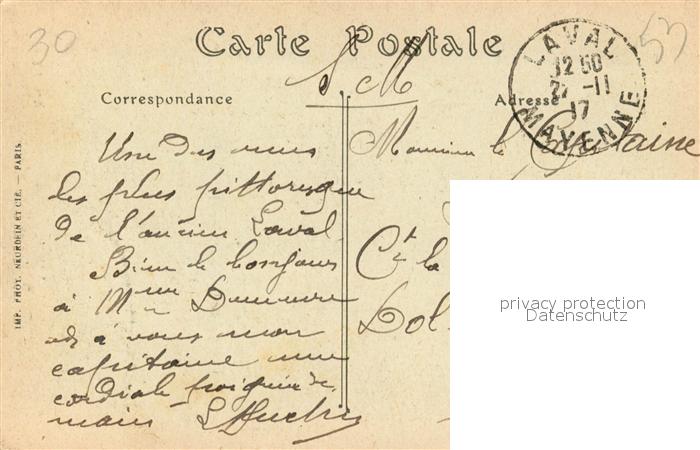 30
53
Carte Postale
S M
Correspondance
Adresse
LAVAL
12 50
27 -11
17
MAYENNE
Une des rues
les plus pittoresque
de l'ancien Laval
Bien le bonjour
à Mme
et à vous mon
capitaine une
cordiale poignée de
main
Monsieur le Capitaine
Ct la
Dol
IMP. PHOT. NEURDEIN ET CIE. — PARIS.
privacy protection
Datenschutz